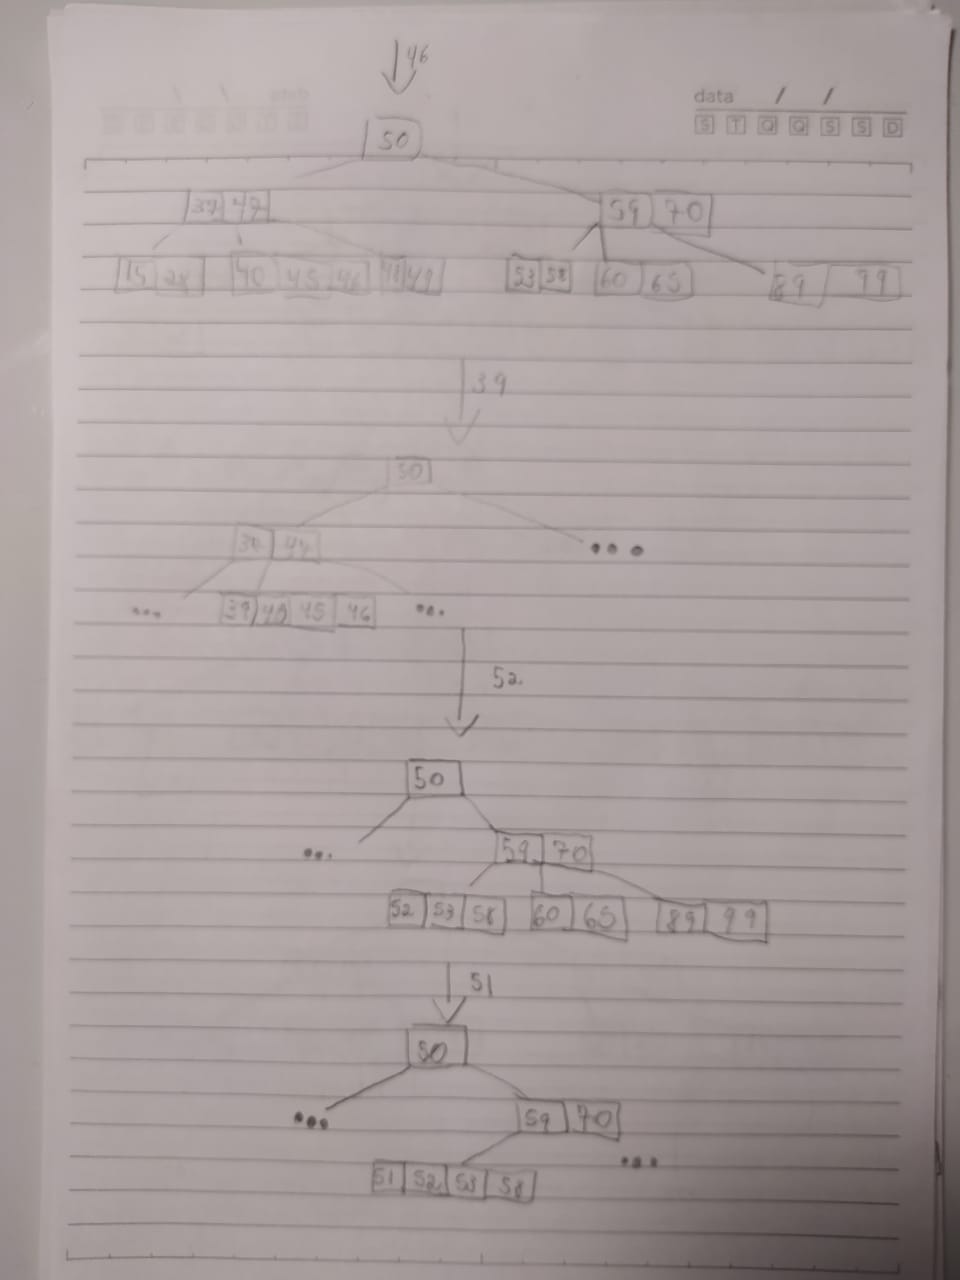 46
data / /
S T Q Q S S D
50
37 47
59 70
15 28 40 45 46 48 49 53 58 60 65 89 99
39
50
37 47
...
... 39 40 45 46 ...
52
50
... 59 70
52 53 58 60 65 89 99
51
50
... 59 70
...
51 52 53 58